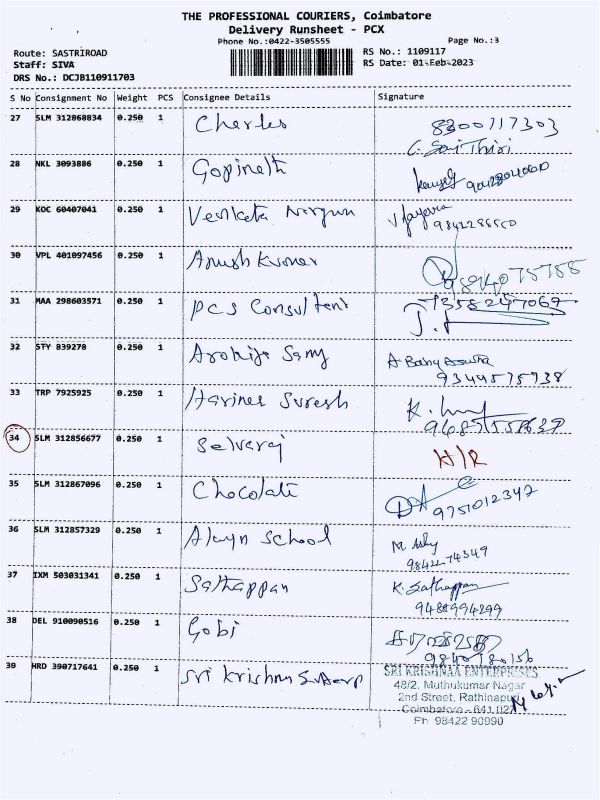 THE PROFESSIONAL COURIERS, Coimbatore
Delivery Runsheet - PCX
Phone No.:0422-3505555 Page No.:3
Route: SASTRIROAD RS No.: 1109117
Staff: SIVA RS Date: 01-Feb-2023
DRS No.: DCJB110911703
S No Consignment No Weight PCS Consignee Details Signature
27 SLM 312868834 0.250 1 Charles 8300717303
28 NKL 3093886 0.250 1 Gopinath
29 KOC 60407041 0.250 1 Venkata 9842286550
30 VPL 401097456 0.250 1 Anush Kumar
31 MAA 298603571 0.250 1 PCS Consultent 7358247067
32 STY 839278 0.250 1 Arokiya Samy A Baby
9344575938
33 TRP 7925925 0.250 1 Suresh K.
34 SLM 312856677 0.250 1 Selvaraj H/R
35 SLM 312867096 0.250 1 Chocolate 9751012347
36 SLM 312857329 0.250 1 School M
9842274349
37 IXM 503031341 0.250 1 Sathappan K. Sathappan
9488994299
38 DEL 910090516 0.250 1 Gobi
9840780156
39 HRD 390717641 0.250 1 Sri Krishna
SRI KRISHNAA ENTERPRISES
48/2, Muthukumar Nagar
2nd Street, Rathinapuri
Coimbatore - 641 027
Ph 98422 90990